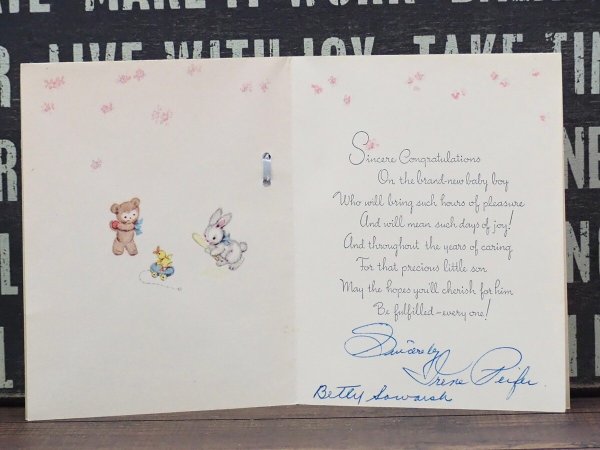 MAKE IT WORK
LIVE WITH JOY. TAKE TIM
Sincere Congratulations
On the brand-new baby boy
Who will bring such hours of pleasure
And will mean such days of joy!
And throughout the years of caring
For that precious little son
May the hopes you'll cherish for him
Be fulfilled-every one!
Sincerely
Irene Peifer
Betty